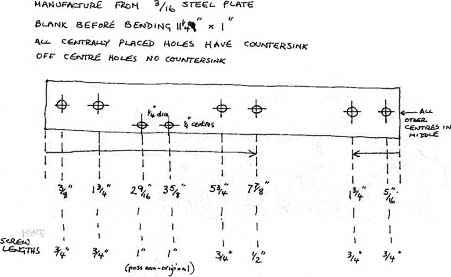 MANUFACTURE FROM 3/16 STEEL PLATE
BLANK BEFORE BENDING 11 1/4" x 1"
ALL CENTRALLY PLACED HOLES HAVE COUNTERSINK
OFF CENTRE HOLES NO COUNTERSINK
1/4" dia
1/4" centres
ALL
OTHER
CENTRES IN
MIDDLE
3/8" 1 3/4" 2 9/16" 3 5/8" 5 3/4" 7 7/8" 1 3/4" 5/16"
SCREW
LENGTHS
3/4" 3/4" 1" 1" 3/4" 1/2" 3/4" 3/4"
(poss non-original)